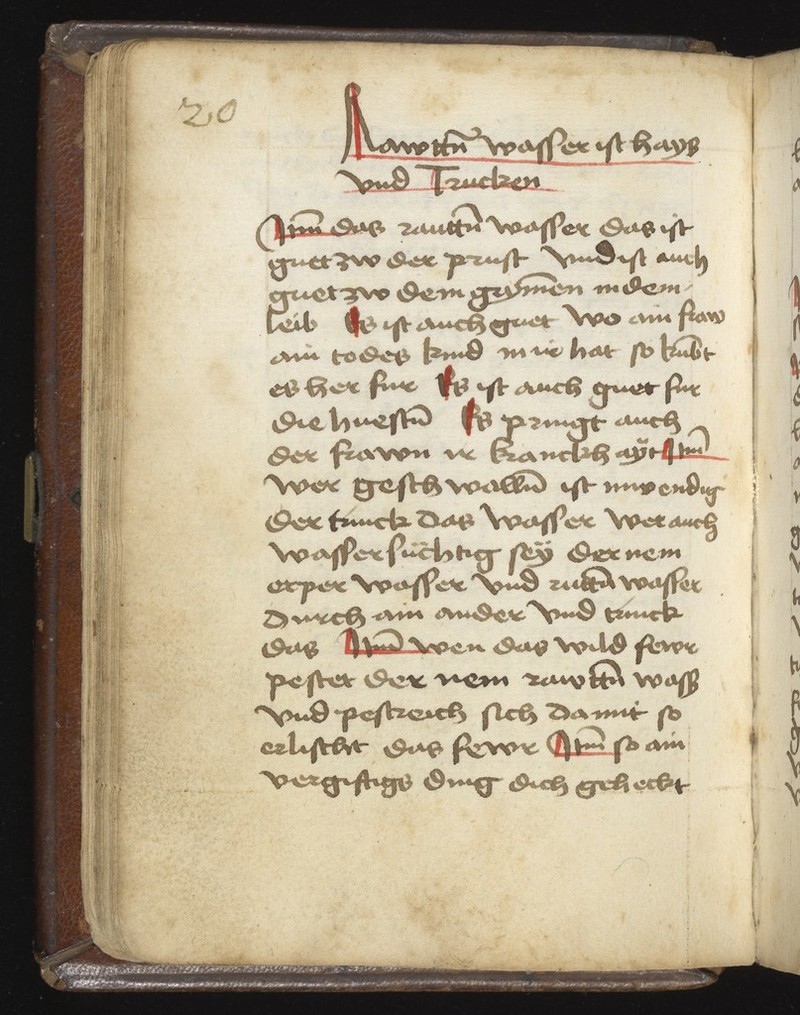 20
Rawttn̄ wasser ist hays
vnd Trucken
Itm̄ das rauttn̄ wasser das ist
guet zw der prust vnd ist auch
guet zw dem gry̅men in dem
leib Es ist auch guet wo ain fraw
ain todes kind in ir hat so kūbt
es her fur Es ist auch guet fur
die huestn̄ Es pringt auch
der frawn ir kranckhaÿt Itm̄
wer geschwalln̄ ist inwendig
der trinck das wasser wer auch
wassersüchtig seÿ der nem
erper wasser vnd ruttn̄ wasser
durch ain ander vnd trinck
das Itm̄ wen das wild fewr
pestet der nem rawttn̄ wass
vnd pestreich sich damit so
erlischt das fewr Itm̄ so ain
vergiftigs ding dich geheckt